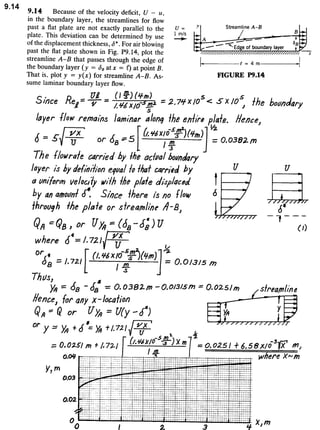 9.14
9.14 Because of the velocity deficit, U − u,
in the boundary layer, the streamlines for flow
past a flat plate are not exactly parallel to the
plate. This deviation can be determined by use
of the displacement thickness, δ*. For air blowing
past the flat plate shown in Fig. P9.14, plot the
streamline A–B that passes through the edge of
the boundary layer (y = δB at x = ℓ) at point B.
That is, plot y = y(x) for streamline A–B. As-
sume laminar boundary layer flow.
U =
1 m/s
y
Streamline A–B
A
B
Edge of boundary layer
x
ℓ = 4 m
FIGURE P9.14
Since Reℓ = Uℓ/ν = (1 m/s)(4m) / 1.46×10⁻⁵ m²/s = 2.74×10⁵ < 5×10⁵, the boundary
layer flow remains laminar along the entire plate. Hence,
δ = 5√(νx/U) or δB = 5 [(1.46×10⁻⁵ m²/s)(4m) / 1 m/s]^½ = 0.0382 m
The flowrate carried by the actual boundary
layer is by definition equal to that carried by
a uniform velocity with the plate displaced
by an amount δ*. Since there is no flow
through the plate or streamline A-B,
U
U
δ
δ*
QA = QB, or UyA = (δB − δB*)U
(1)
where δ* = 1.721 √(νx/U)
or δB* = 1.721 [(1.46×10⁻⁵ m²/s)(4m) / 1 m/s]^½ = 0.01315 m
Thus,
yA = δB − δB* = 0.0382m − 0.01315m = 0.0251m
Hence, for any x-location
QA = Q or UyA = U(y − δ*)
or y = yA + δ* = yA + 1.721 √(νx/U)
streamline
yA
y
= 0.0251 m + 1.721 [(1.46×10⁻⁵ m²/s) x m / 1 m/s]^½ = 0.0251 + 6.58×10⁻³ √x m,
where x~m
y, m
0.04
0.03
0.02
0
0 1 2 3 4 x, m